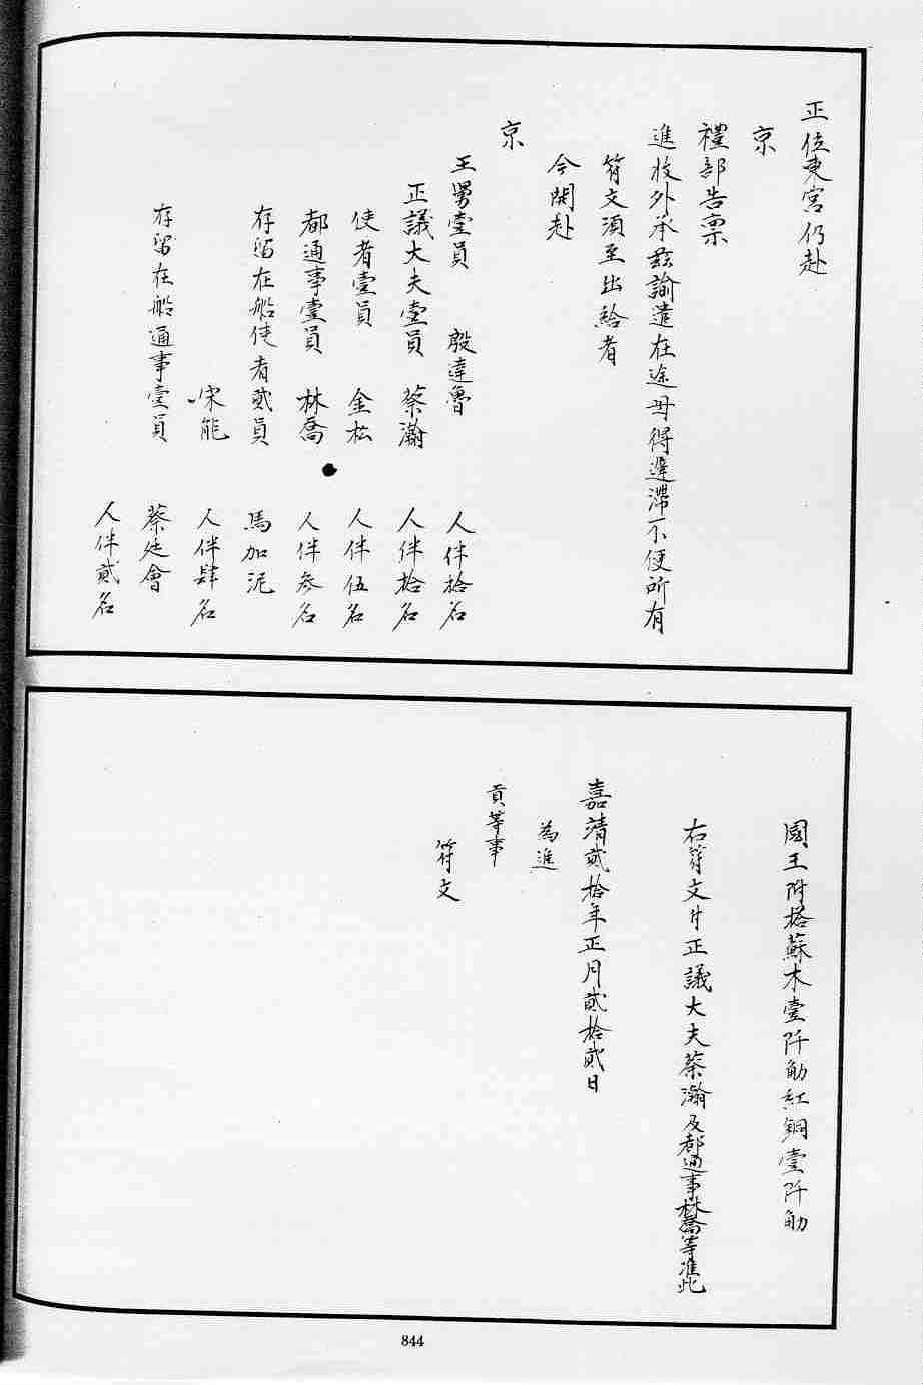 正位東宮仍赴
京
禮部告稟
進投外承茲諭遣在途毋得遲滯不便所有
符文須至出給者
今開赴
京
王舅壹員 殷達魯 人伴拾名
正議大夫壹員 蔡瀚 人伴拾名
使者壹員 金松 人伴伍名
都通事壹員 林喬 人伴參名
存留在船使者貳員 馬加泥
宋能 人伴肆名
存留在船通事壹員 蔡廷會
人伴貳名
國王附搭蘇木壹阡觔紅銅壹阡觔
右符文付正議大夫蔡瀚及都通事林喬等准此
嘉靖貳拾年正月貳拾貳日
為進
貢等事
符文
844